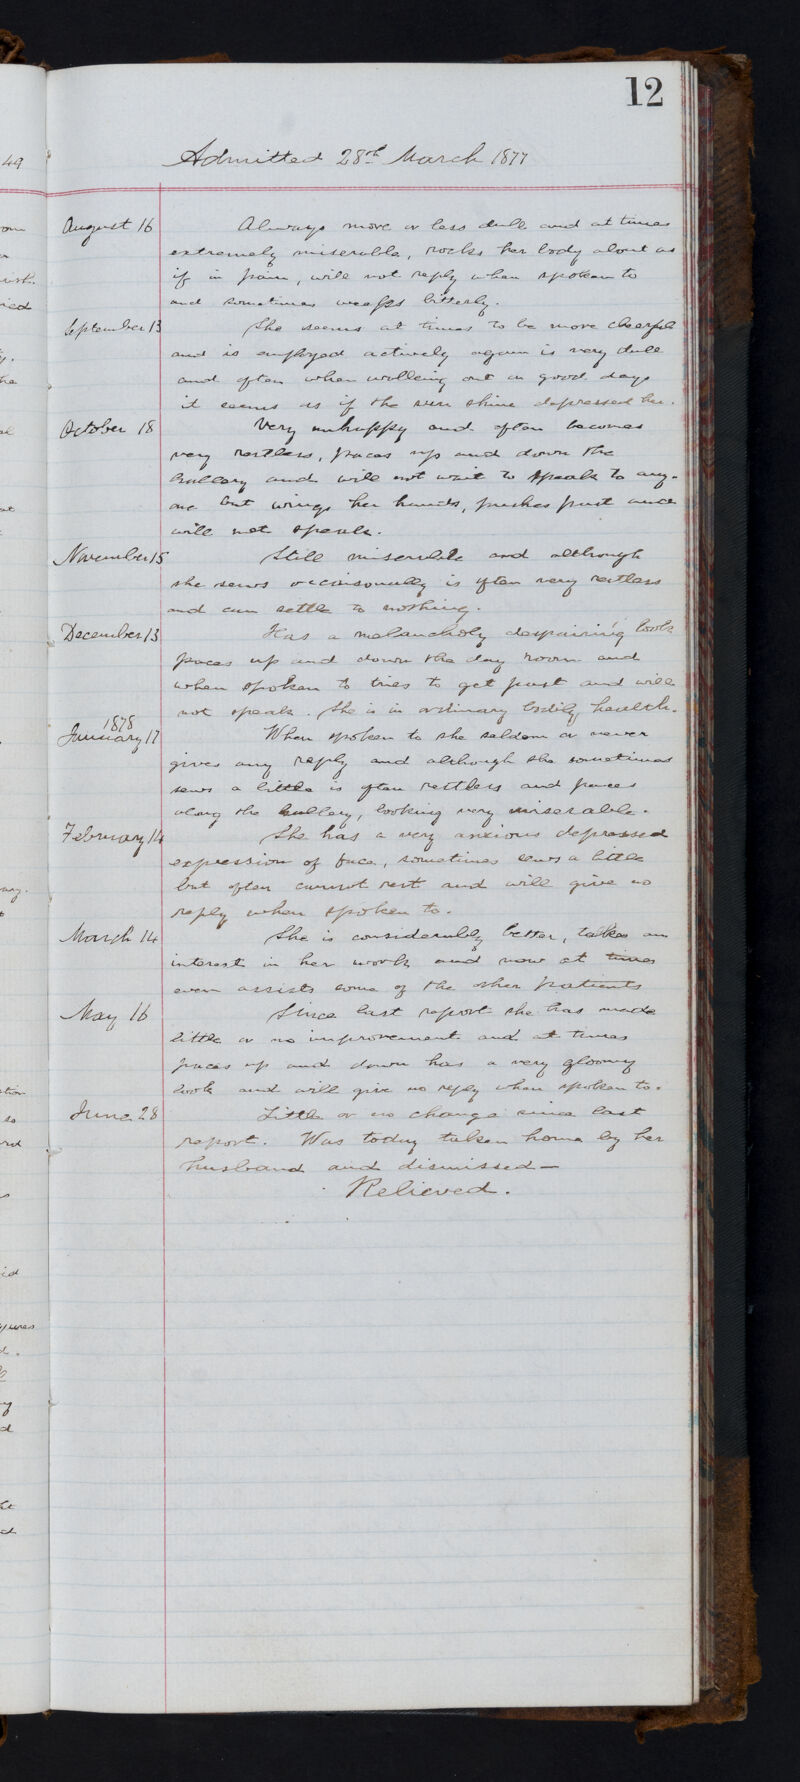 12
Admitted 28th March 1877
August 16 Always more or less dull and at times
extremely miserable, rocks her body about as
if in pain, will not reply when spoken to
and sometimes weeps bitterly.
September 13 She seems at times to be more cheerful
and is employed actively again is very dull
and often when walking out on good days
it seems as if the sun shine depressed her.
October 18 Very unhappy and often becomes
very restless, paces up and down the
gallery and will not wait to speak to any-
one but wrings her hands, pushes past and
will not speak.
November 15 Still miserable and although
she sews occaisonally is often very restless
and can settle to nothing.
December 13 Has a melancholy despairing look
paces up and down the day room and
when spoken to tries to get past and will
not speak. She is in ordinary bodily health.
1878
January 17 When spoken to she seldom or never
gives any reply and although she sometimes
sews a little is often restless and paces
along the gallery, looking very miserable.
February 14 She has a very anxious depressed
expression of face, sometimes sews a little
but often cannot rest and will give no
reply when spoken to.
March 14 She is considerably better, takes an
interest in her work and now at times
even assists some of the other patients
May 16 Since last report she has made
little or no improvement and at times
paces up and down has a very gloomy
look and will give no reply when spoken to.
June 28 Little or no change since last
report. Was today taken home by her
husband and dismissed—
Relieved.